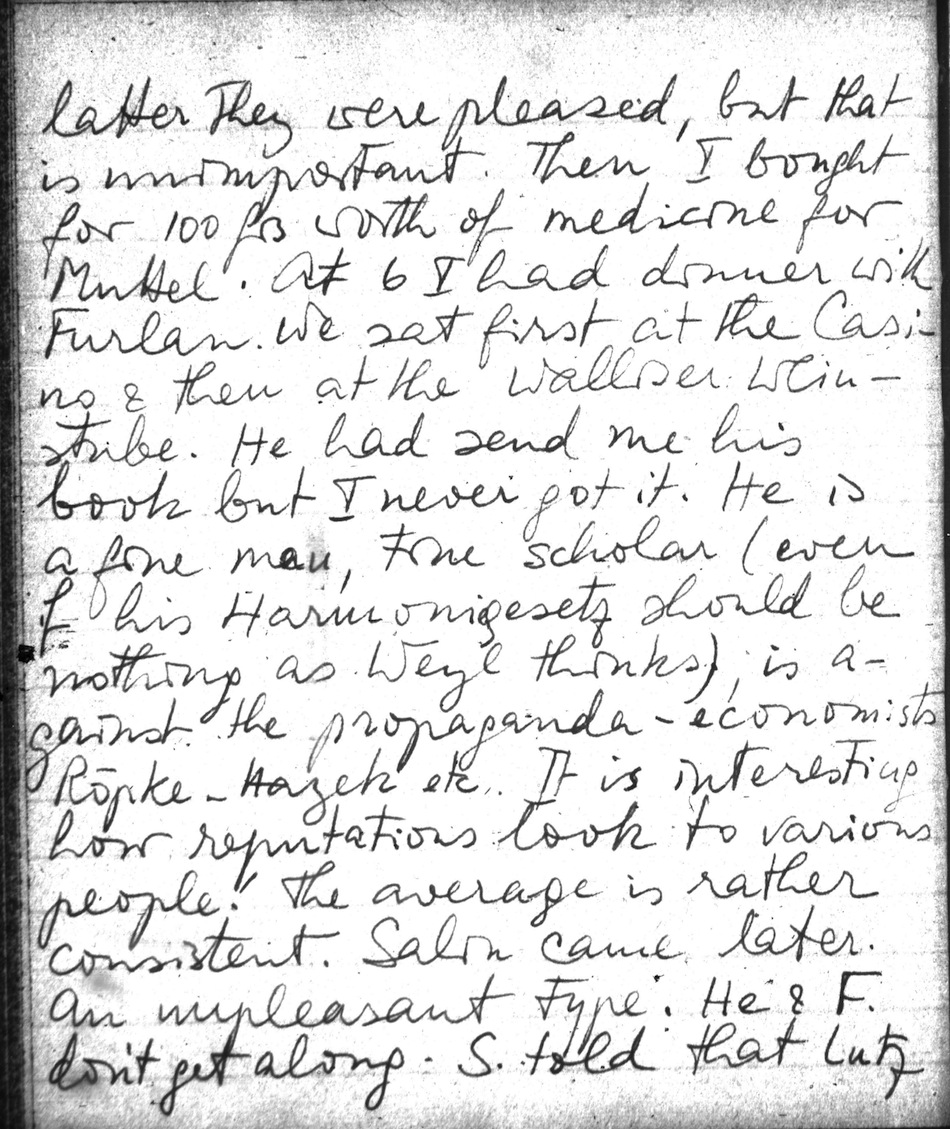 latter They were pleased, but that
is unimportant. Then I bought
for 100 frs worth of medicine for
Muttel. At 6 I had dinner with
Furlan. We sat first at the Casi-
no & then at the Walliser Wein-
stube. He had send me his
book but I never got it. He is
a fine man, fine scholar (even
if his Harmoniegesetz should be
nothing as Weyl thinks), is a-
gainst the propaganda-economists
Röpke - Hayek etc. It is interesting
how reputations look to various
people! The average is rather
consistent. Salin came later.
An unpleasant type. He & F.
don't get along. S. told that Lutz